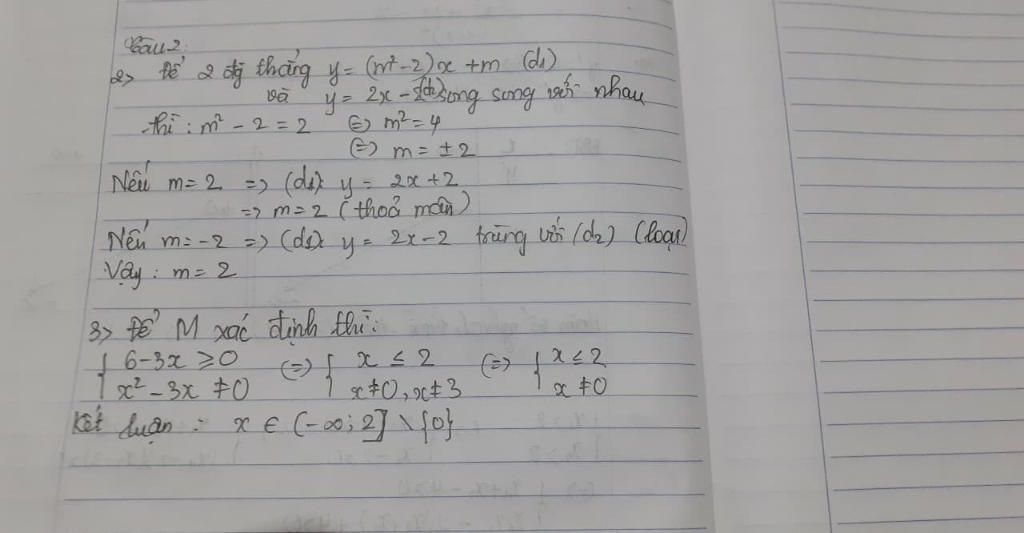 Câu 2:
2> Để 2 đg thẳng y = (m² - 2)x + m (d₁)
và y = 2x - 2 (d₂) song song với nhau
thì : m² - 2 = 2 ⇔ m² = 4
⇔ m = ± 2
Nếu m = 2 => (d₁): y = 2x + 2
=> m = 2 (thoả mãn)
Nếu m = -2 => (d₁): y = 2x - 2 trùng với (d₂) (loại)
Vậy : m = 2
3> Để M xác định thì:
{ 6 - 3x ≥ 0 ⇔ { x ≤ 2 ⇔ { x ≤ 2
x² - 3x ≠ 0 x ≠ 0, x ≠ 3 x ≠ 0
Kết luận : x ∈ (-∞; 2] \ {0}